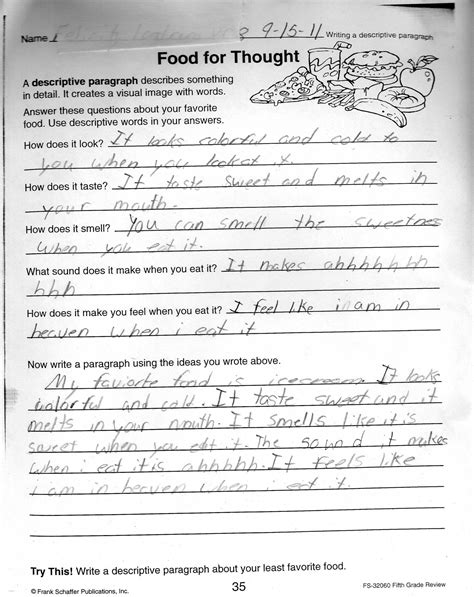 Name 9-15-11 Writing a descriptive paragraph
Food for Thought
A descriptive paragraph describes something
in detail. It creates a visual image with words.
Answer these questions about your favorite
food. Use descriptive words in your answers.
How does it look? It looks colorful and cold to
you when you look at it.
How does it taste? It taste sweet and melts in
your mouth.
How does it smell? You can smell the sweetness
when you eat it.
What sound does it make when you eat it? It makes ahhhhhhh
hhh
How does it make you feel when you eat it? I feel like i am in
heaven when i eat it
Now write a paragraph using the ideas you wrote above.
My faviorte food is icecream. It looks
colorful and cold. It taste sweet and it
melts in your mouth. It smells like it is
sweet when you eat it. The sound it makes
when i eat it is ahhhhh. It feels like
i am in heaven when i eat it.
Try This! Write a descriptive paragraph about your least favorite food.
© Frank Schaffer Publications, Inc. 35 FS-32060 Fifth Grade Review